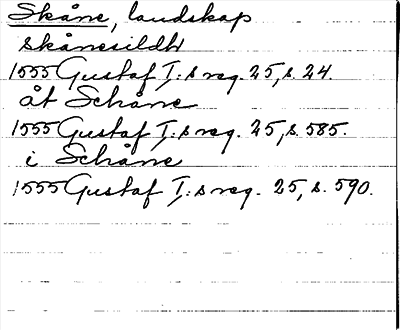 Skåne, landskap
skånesildh
1555 Gustaf I:s reg. 25, s. 24.
åt Schåne
1555 Gustaf I:s reg. 25, s. 585.
i Schåne
1555 Gustaf I:s reg. 25, s. 590.